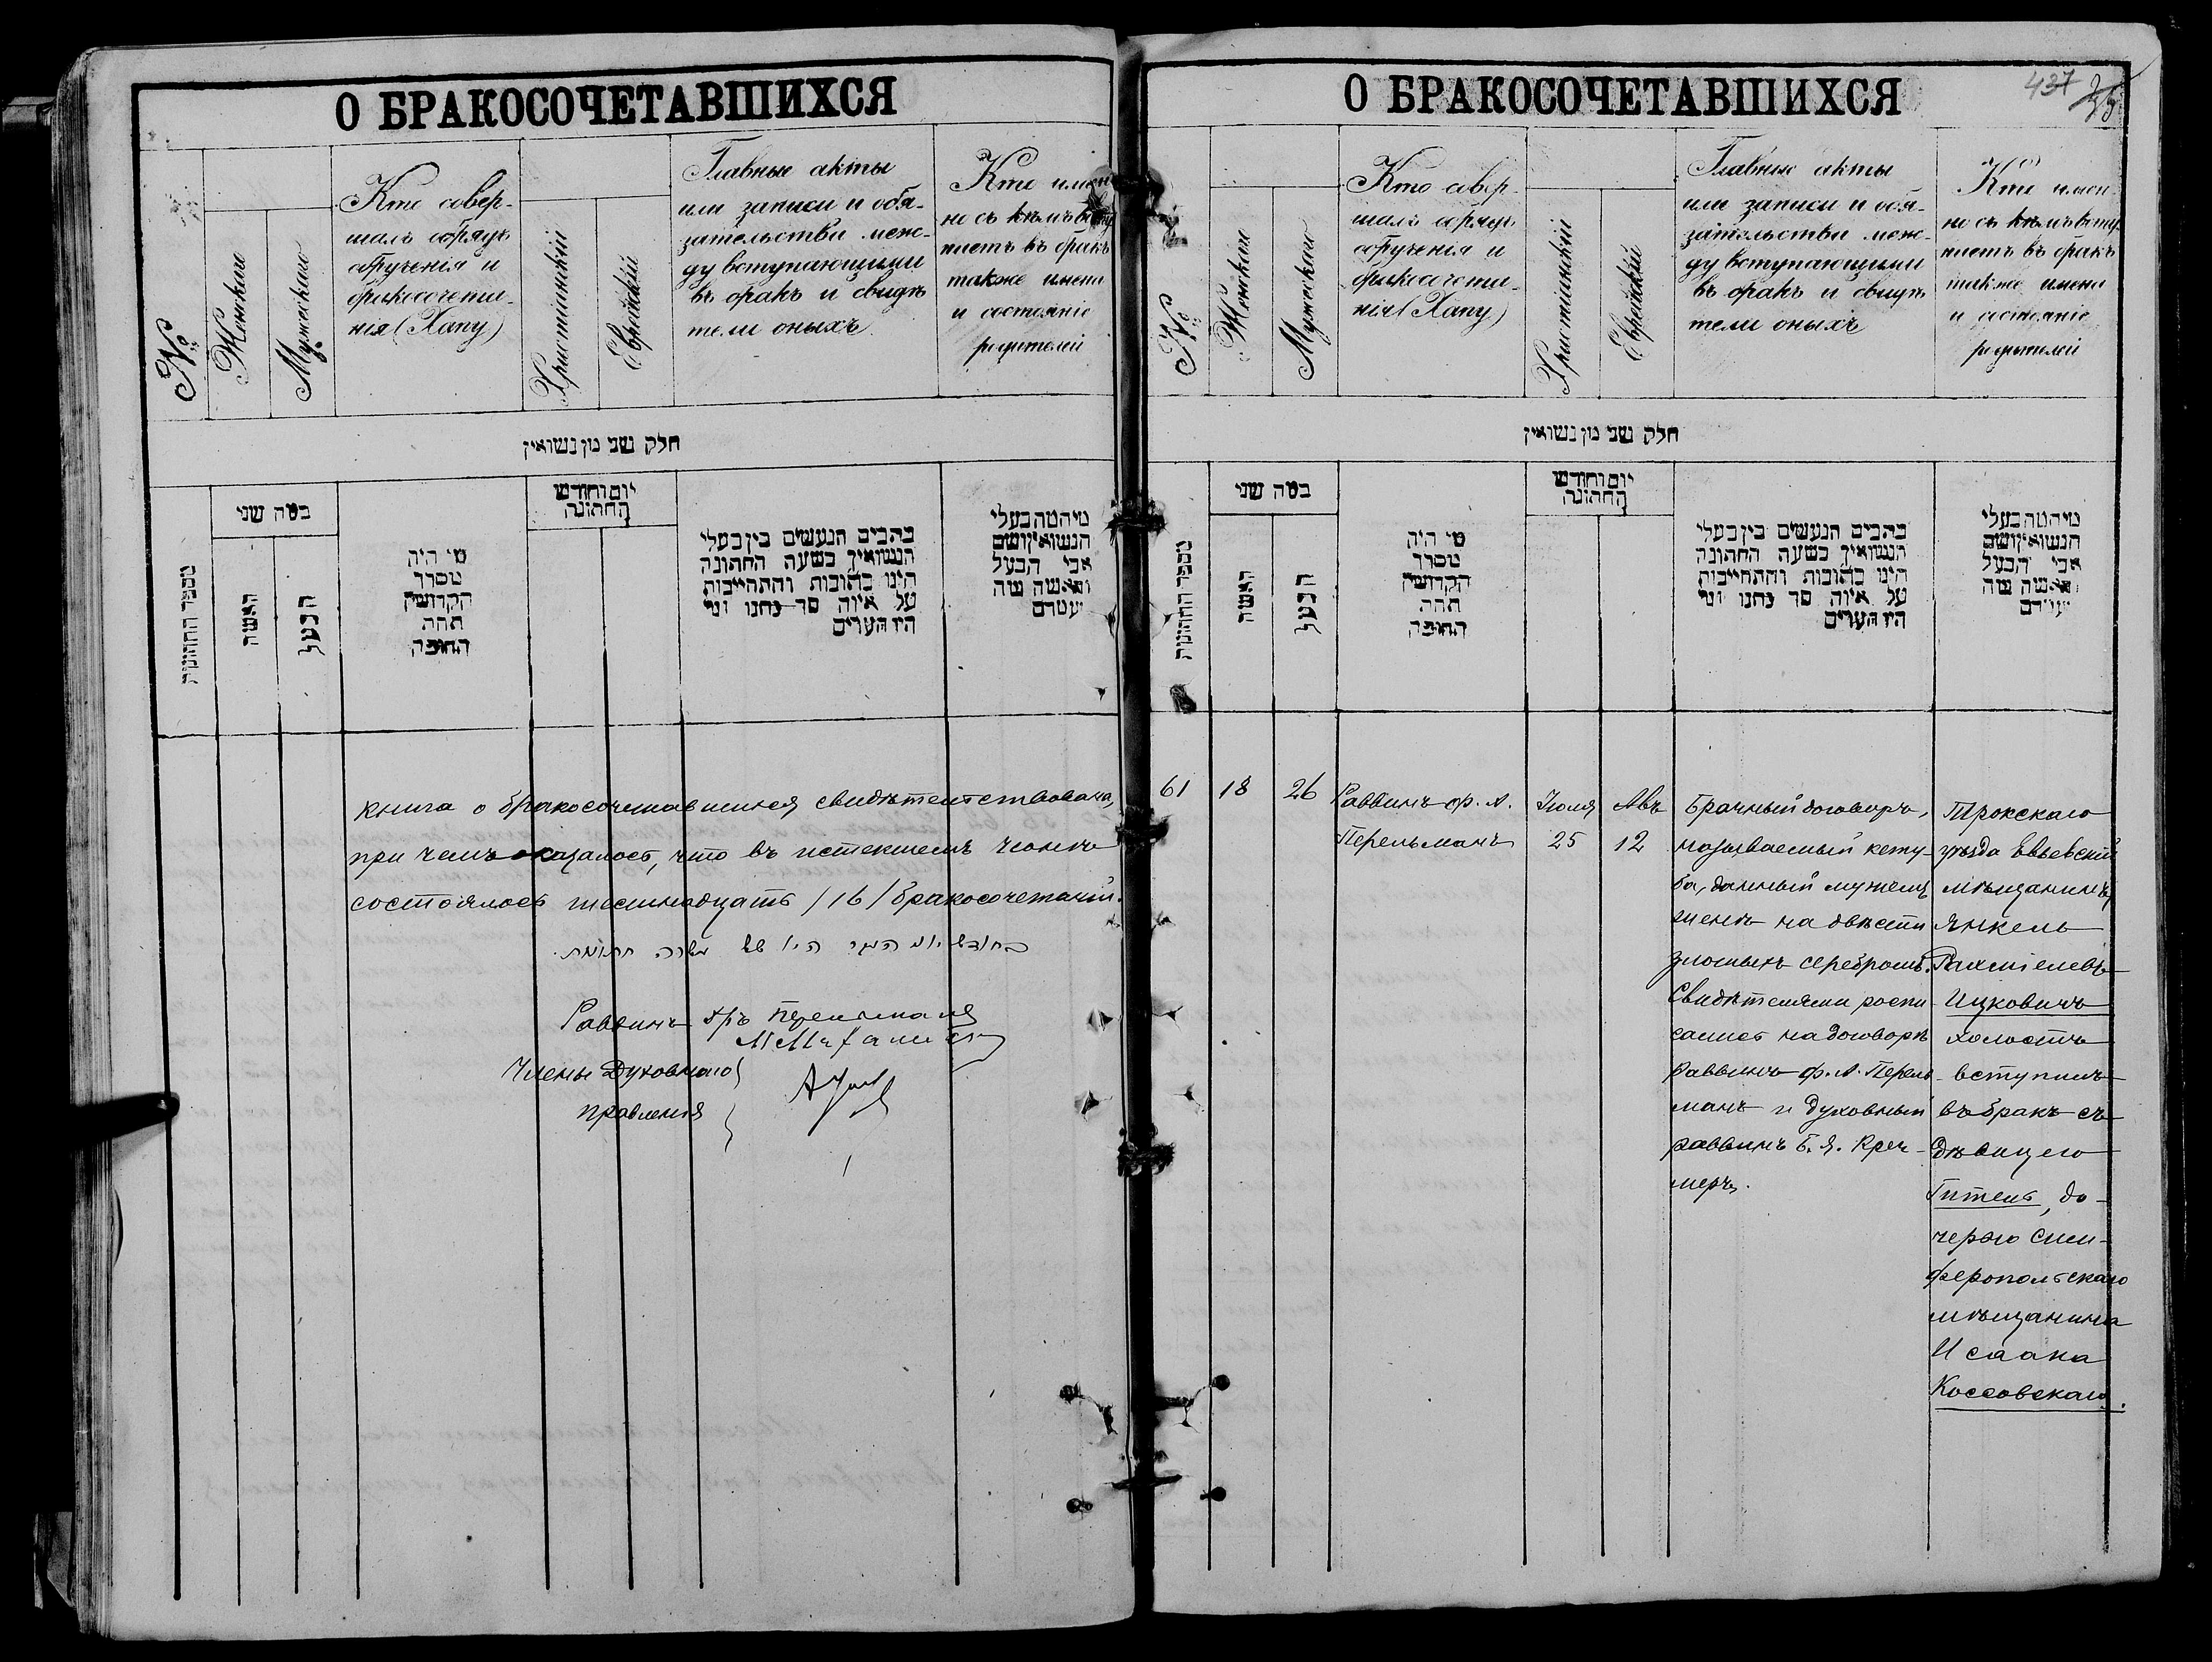 О БРАКОСОЧЕТАВШИХСЯ
№
Женскаго
Мужескаго
Кто совер-
шалъ обрядъ
обрученія и
бракосочета-
нія (Хапу)
Христіанскій
Еврейскій
Главные акты
или записи и обя-
зательства меж-
ду вступающими
въ бракъ и свидѣ
тели оныхъ
Кто имен
но съ кѣмъ всту
паетъ въ бракъ
также имена
и состояніе
родителей
חלק שני מן נשואין
מספר החתונות
כמה שני
האשה
הבעל
מי היה
מסדר
הקדושין
תחת
החופה
יום וחודש
החתונה
כתבים הנעשים בין בעלי
הנשואין בשעה החתונה
היינו כתובות והתחייבות
על איזה סך נתנו ומי
היו העדים
מיהמה בעלי
הנשואין ושם
אבי הבעל
והאשה מה
מעמדם
книга о бракосочетавшихся свидѣтельствована,
при чемъ оказалось, что въ истекшемъ іюнѣ
состоялось шестнадцать /16/ бракосочетаній.
בחודש יוני היו שש עשרה חתונות.
Раввинъ Др Перельманъ
Члены Духовнаго
правленія
О БРАКОСОЧЕТАВШИХСЯ
437
№
Женскаго
Мужескаго
Кто совер-
шалъ обрядъ
обрученія и
бракосочета-
нія (Хапу)
Христіанскій
Еврейскій
Главные акты
или записи и обя-
зательства меж-
ду вступающими
въ бракъ и свидѣ
тели оныхъ
Кто имен-
но съ кѣмъ всту-
паетъ въ бракъ
также имена
и состояніе
родителей
חלק שני מן נשואין
מספר החתונות
כמה שני
האשה
הבעל
מי היה
מסדר
הקדושין
תחת
החופה
יום וחודש
החתונה
כתבים הנעשים בין בעלי
הנשואין בשעה החתונה
היינו כתובות והתחייבות
על איזה סך נתנו ומי
היו העדים
מיהמה בעלי
הנשואין ושם
אבי הבעל
והאשה מה
מעמדם
61 18 26
Раввинъ Ф. А.
Перельманъ
Іюля
25
Авъ
12
Брачный договоръ,
называемый кету-
ба, данный мужемъ
женѣ на двѣсти
злотыхъ серебромъ.
Свидѣтелями роспи-
сались на договорѣ
раввинъ Ф. А. Перель-
манъ и духовный
раввинъ Б. Я. Креч-
меръ.
Трокскаго
уѣзда Евьевскій
мѣщанинъ
Янкель
Рахміелевъ
Ицковичъ
холостъ
вступилъ
въ бракъ съ
дѣвицею
Гителъ, до-
черью Сим-
феропольскаго
мѣщанина
Исаака
Коссовскаго.